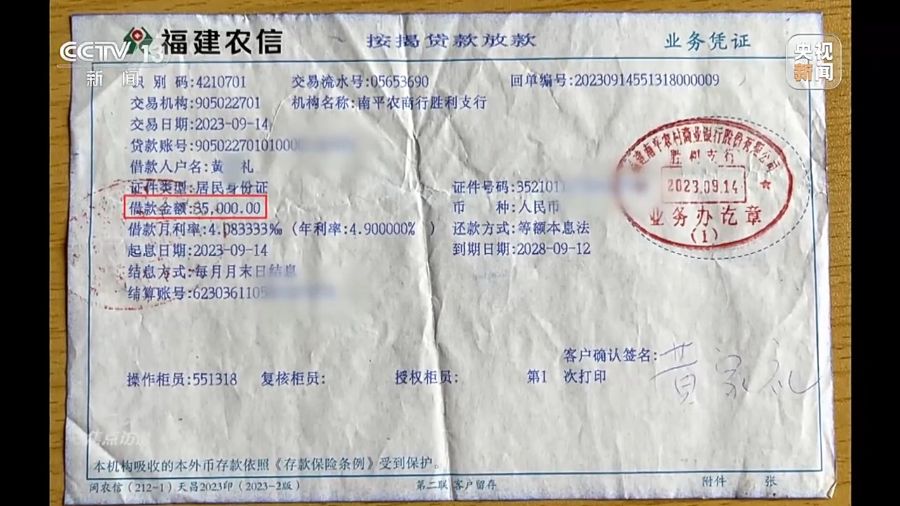 CCTV 13 新闻
福建农信 按揭贷款放款 业务凭证
央视新闻
识别码:4210701 交易流水号:05653690 回单编号:20230914551318000009
交易机构:905022701 机构名称:南平农商行胜利支行
交易日期:2023-09-14
贷款账号:9050227010100
借款人户名:黄 礼
证件类型:居民身份证 证件号码:352101
借款金额:35,000.00 币 种:人民币
借款月利率:4.083333‰（年利率:4.900000% ） 还款方式:等额本息法
起息日期:2023-09-14 到期日期:2028-09-12
结息方式:每月月末日结息
结算账号:6230361105
福建南平农村商业银行股份有限公司
胜利支行
2023.09.14
业务办讫章
(1)
客户确认签名: 黄家礼
操作柜员:551318 复核柜员: 授权柜员: 第1 次打印
焦点访
本机构吸收的本外币存款依照《存款保险条例》受到保护。
闽农信（212-1）天昌2023印（2023-2版） 第二联 客户留存 附件 张